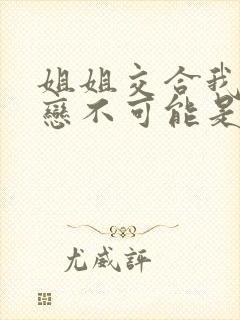 姐姐交合我
戀不可能是
尤威評